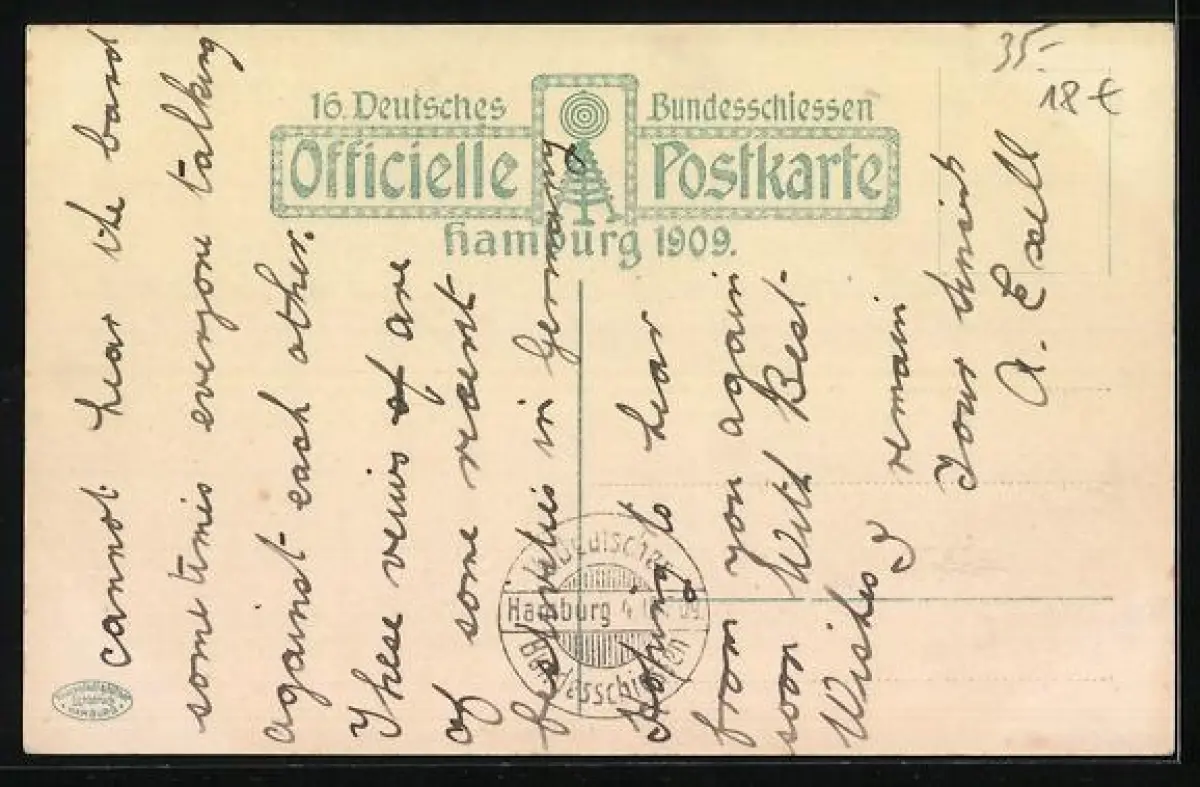 16. Deutsches Bundesschiessen
Officielle Postkarte
Hamburg 1909.
35.-
18 €
cannot hear the band
some times everyone talking
against each other.
These veiws of are
of some resent
festivities in Germany
Hoping to hear
from you again
soon With Best
Wishes
I remain
Your
A.
Deutsches
Hamburg 4 09
Bundesschiessen
HAMBURG